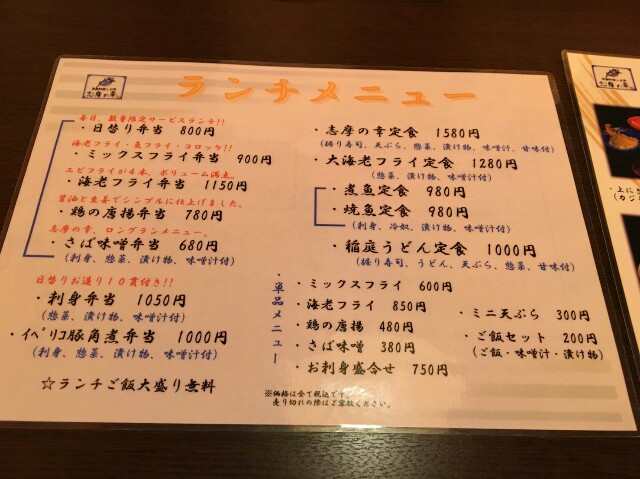 志摩の幸
ランチメニュー
毎日、数量限定サービスランチ!!
・日替り弁当 800円
海老フライ・魚フライ・コロッケ!!
・ミックスフライ弁当 900円
エビフライが4本、ボリューム満点。
・海老フライ弁当 1150円
醤油と生姜でシンプルに仕上げました。
・鶏の唐揚弁当 780円
志摩の幸、ロングランメニュー。
・さば味噌弁当 680円
(刺身、惣菜、漬け物、味噌汁付)
日替りお造り10貫付き!!
・刺身弁当 1050円
(惣菜、漬け物、味噌汁付)
・イベリコ豚角煮弁当 1000円
(刺身、惣菜、漬け物、味噌汁付)
☆ランチご飯大盛り無料
・志摩の幸定食 1580円
(握り寿司、天ぷら、惣菜、漬け物、味噌汁、甘味付)
・大海老フライ定食 1280円
(惣菜、漬け物、味噌汁付)
・煮魚定食 980円
・焼魚定食 980円
(刺身、冷奴、漬け物、味噌汁付)
・稲庭うどん定食 1000円
(握り寿司、うどん、天ぷら、惣菜、甘味付)
・単品メニュー
・ミックスフライ 600円
・海老フライ 850円
・鶏の唐揚 480円
・さば味噌 380円
・お刺身盛合せ 750円
・ミニ天ぷら 300円
・ご飯セット 200円
(ご飯・味噌汁・漬け物)
※価格は全て税込です。
売り切れの際はご容赦ください。
志摩の幸
・上にき
(カジ